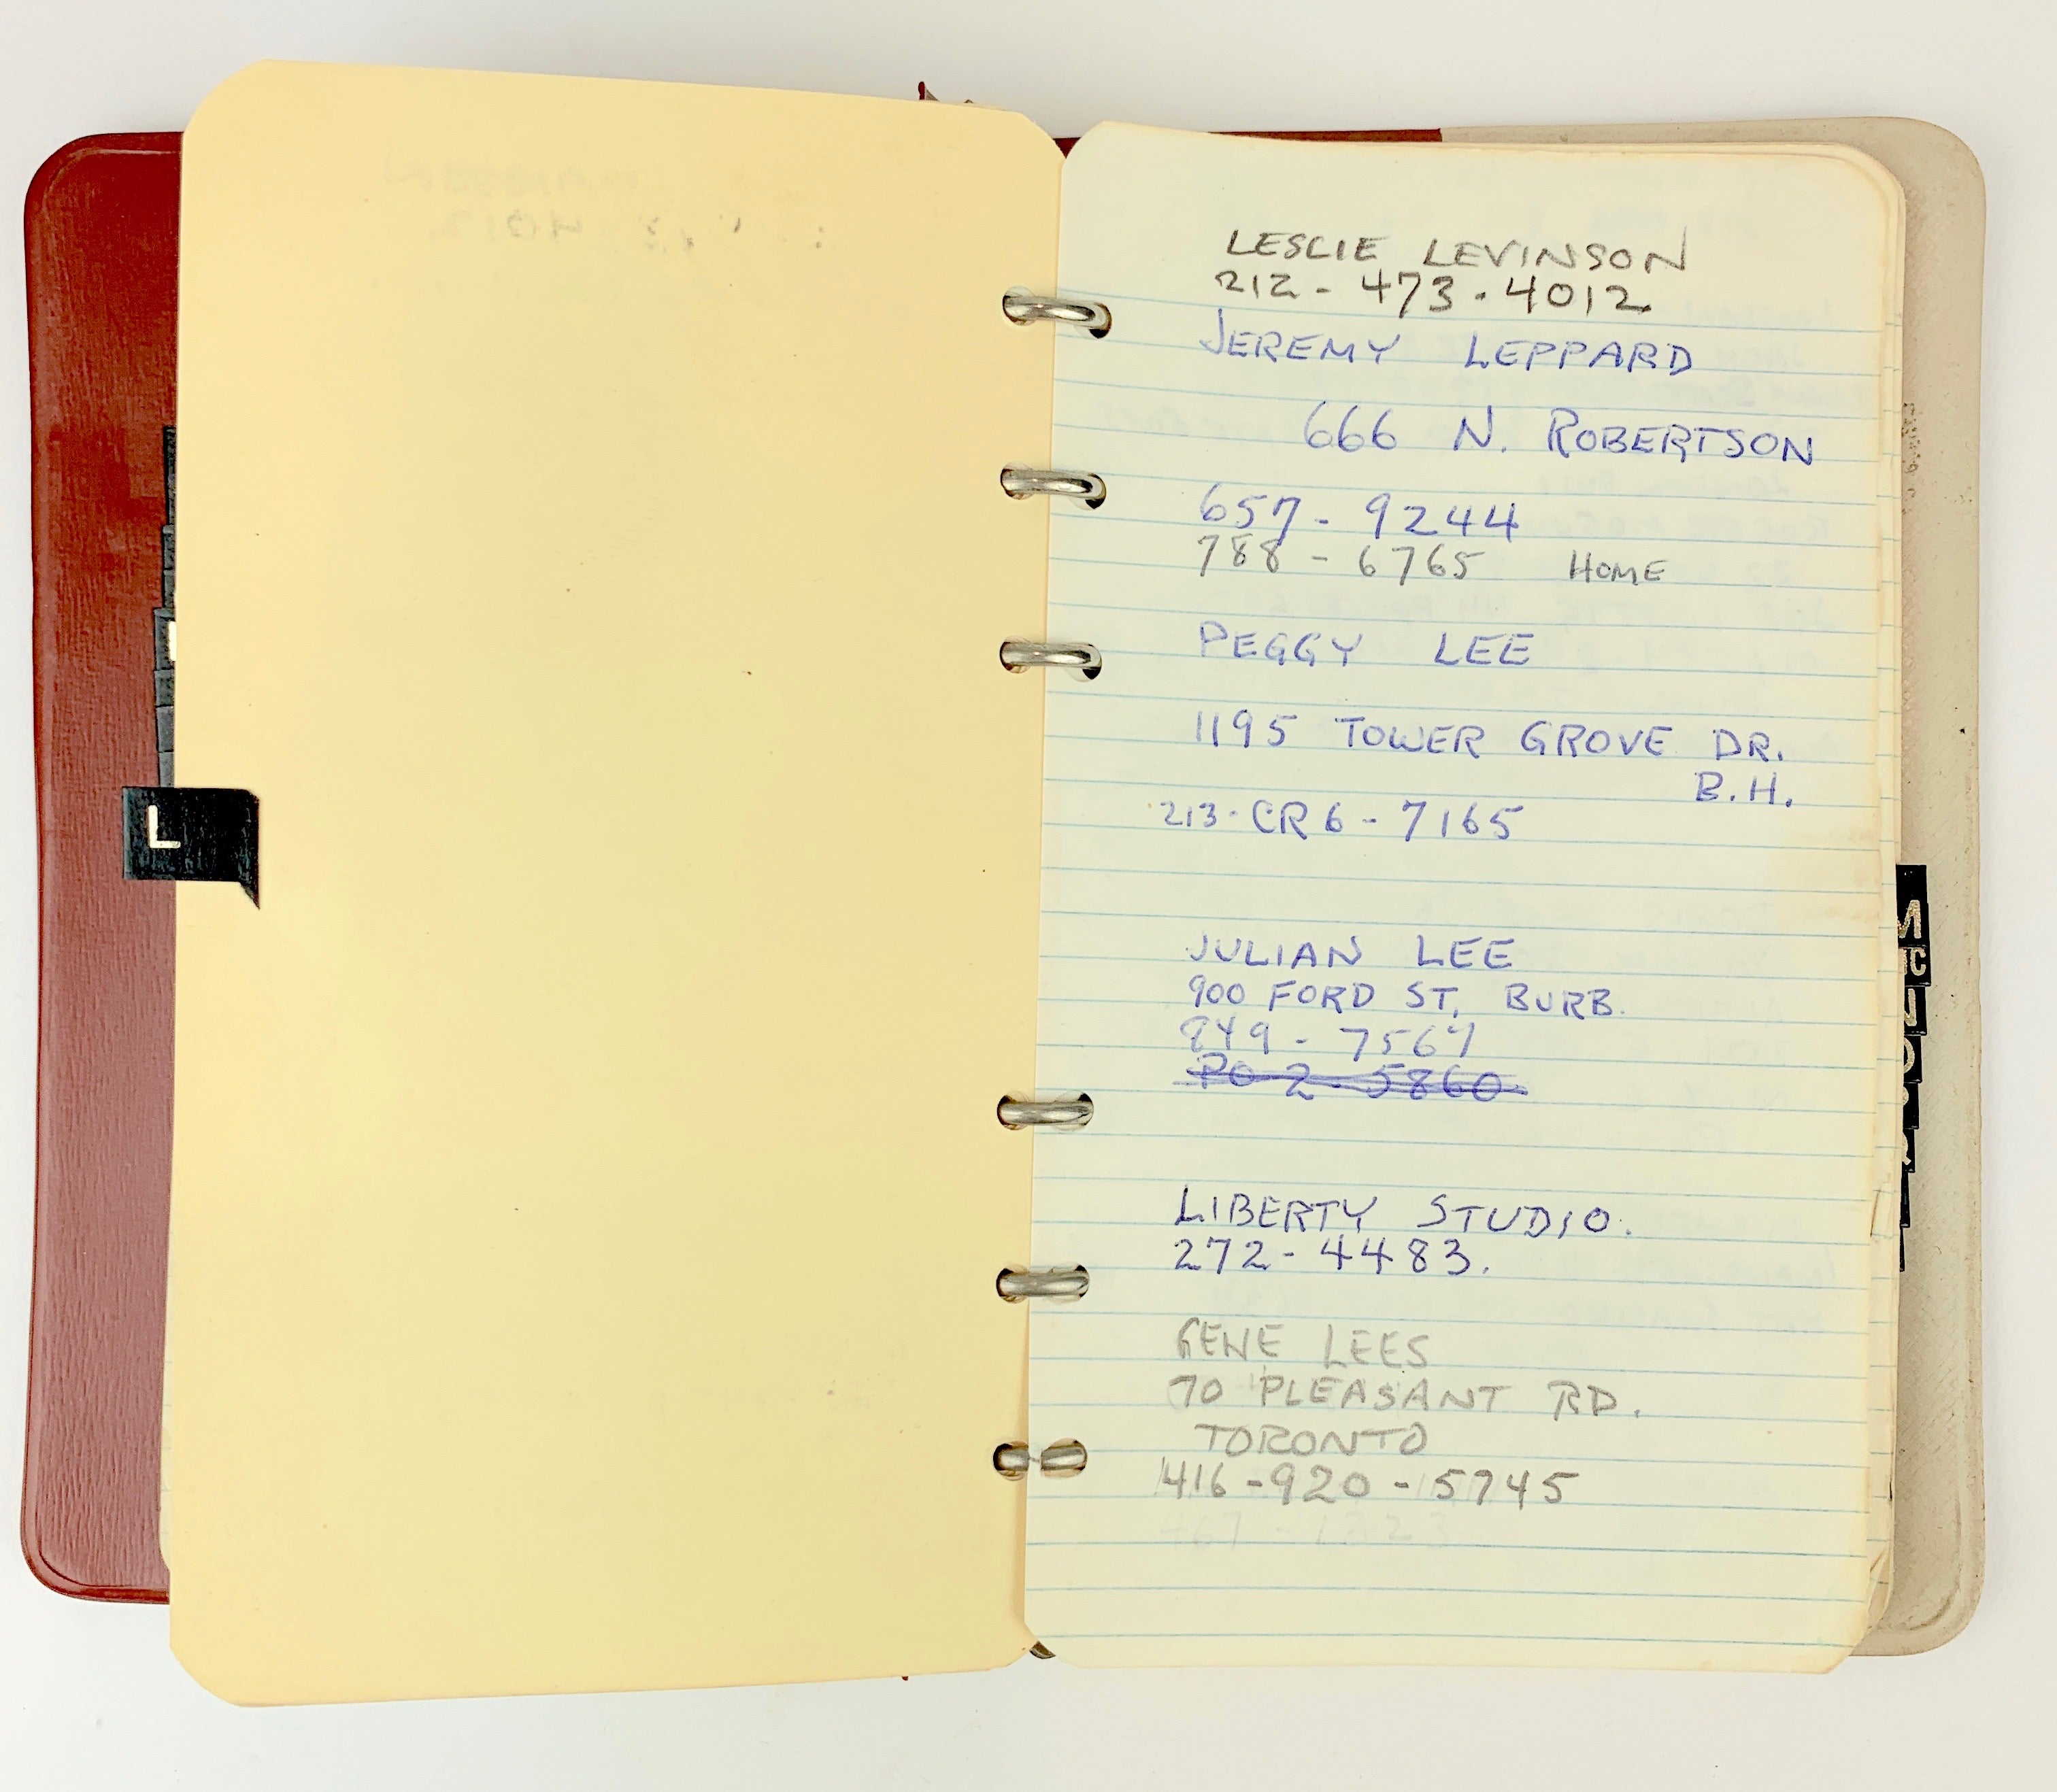 L
LESLIE LEVINSON
212 - 473 - 4012
JEREMY LEPPARD
666 N. ROBERTSON
657 - 9244
788 - 6765 HOME
PEGGY LEE
1195 TOWER GROVE DR.
B.H.
213 - CR6 - 7165
JULIAN LEE
900 FORD ST, BURB.
849 - 7567
PO 2 - 5860
LIBERTY STUDIO.
272 - 4483.
GENE LEES
70 PLEASANT RD.
TORONTO
416 - 920 - 5745
467 - 1323
M